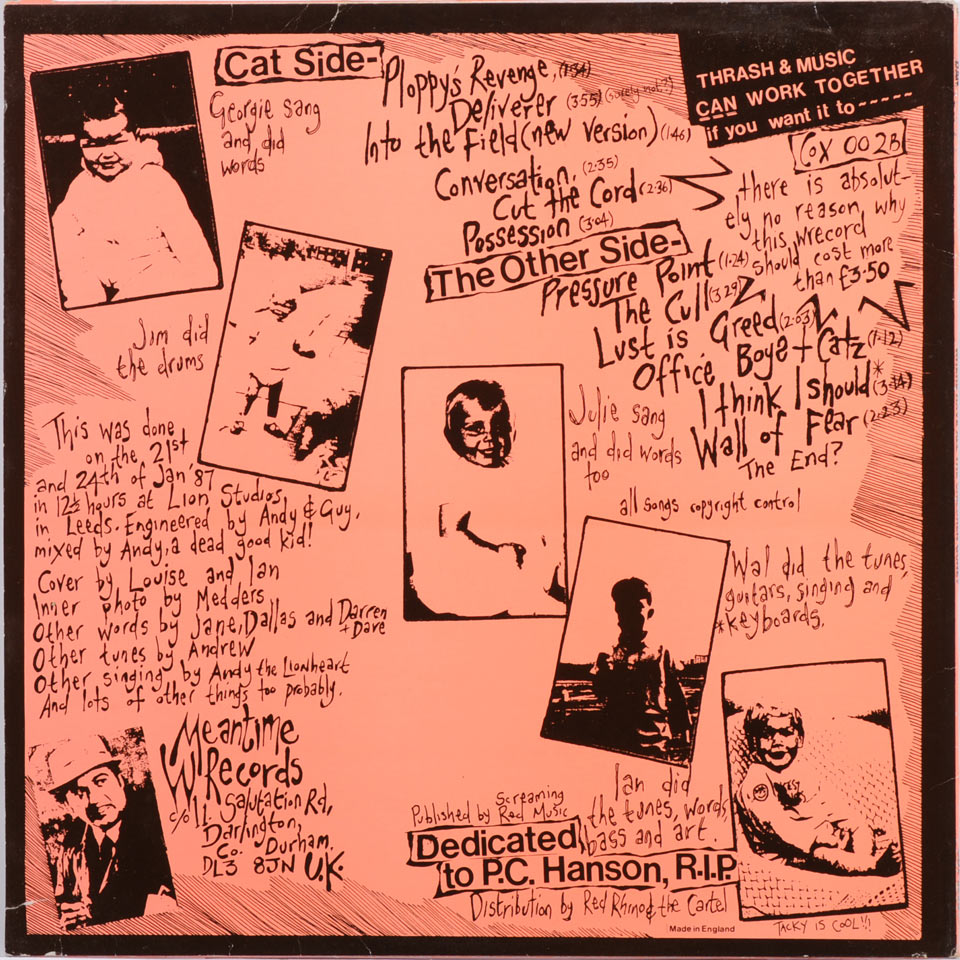 Cat Side-
Georgie sang
and did
words
Ploppy's Revenge, (1·34)
Deliverer (3·55) (surely not?)
Into the Field (new version) (1·46)
Conversation, (2·35)
Cut the Cord (2·36)
Possession (3·04)
THRASH & MUSIC
CAN WORK TOGETHER
if you want it to -----
COX 002B
there is absolut-
ely no reason why
this wrecord
should cost more
than £3·50
The Other Side-
Pressure Point (1·24)
The Cull (3·29)
Lust is Greed (2:03)
Office Boyz + Catz (1·12)
I think I should* (3·14)
Wall of Fear (2:23)
The End?
Jim did
the drums
Julie sang
and did words
too
all songs copyright control
This was done
on the 21st
and 24th of Jan '87
in 12½ hours at Lion Studios
in Leeds. Engineered by Andy & Guy,
mixed by Andy, a dead good kid!
Cover by Louise and Ian
Inner photo by Medders
Other words by Jane, Dallas and Darren
+ Dave
Other tunes by Andrew
Other singing by Andy the Lionheart
And lots of other things too probably.
Wal did the tunes,
guitars, singing and
*keyboards.
Meantime
WRecords
c/o 11. Salutation Rd,
Darlington,
Co. Durham.
DL3 8JN U.K.
Ian did
the tunes, words,
bass and art.
Published by Screaming
Red Music
Dedicated
to P.C. Hanson, R.I.P.
Distribution by Red Rhino & the Cartel
Made in England
TACKY IS COOL!!!